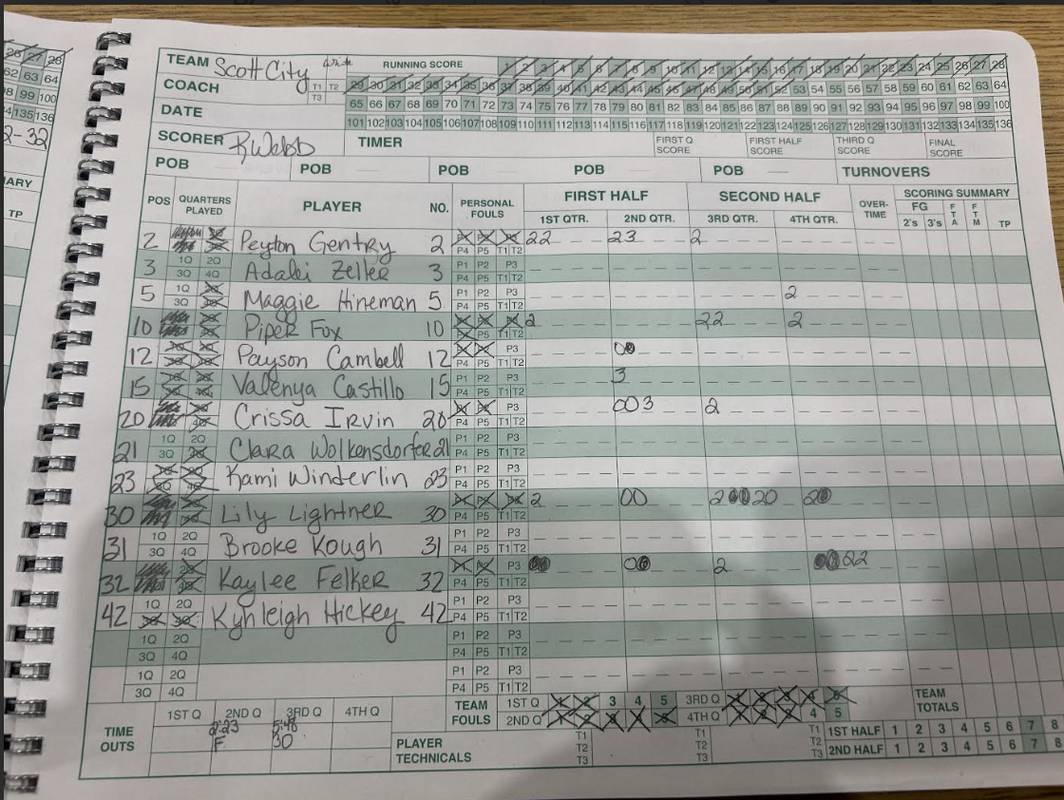 26 27 28
62 63 64
98 99 100
134 135 136
2-32
ARY
TP
TEAM Scott City RUNNING SCORE 1 2 3 4 5 6 7 8 9 10 11 12 13 14 15 16 17 18 19 20 21 22 23 24 25 26 27 28
COACH T1 T2 T3 29 30 31 32 33 34 35 36 37 38 39 40 41 42 43 44 45 46 47 48 49 50 51 52 53 54 55 56 57 58 59 60 61 62 63 64
65 66 67 68 69 70 71 72 73 74 75 76 77 78 79 80 81 82 83 84 85 86 87 88 89 90 91 92 93 94 95 96 97 98 99 100
DATE 101 102 103 104 105 106 107 108 109 110 111 112 113 114 115 116 117 118 119 120 121 122 123 124 125 126 127 128 129 130 131 132 133 134 135 136
SCORER R Webb TIMER FIRST Q SCORE FIRST HALF SCORE THIRD Q SCORE FINAL SCORE
POB POB POB POB POB TURNOVERS
POS QUARTERS PLAYED PLAYER NO. PERSONAL FOULS FIRST HALF SECOND HALF OVER-TIME SCORING SUMMARY
1ST QTR. 2ND QTR. 3RD QTR. 4TH QTR. FG 2'S 3'S FTA FTM TP
2 Peyton Gentry 2 P4 P5 T1 T2 22 23 2
3 1Q 2Q 3Q 4Q Adali Zeller 3 P1 P2 P3 P4 P5 T1 T2
5 1Q 3Q Maggie Hineman 5 P1 P2 P3 P4 P5 T1 T2 2
10 Piper Fox 10 P5 T1 T2 2 22 2
12 Payson Cambell 12 P3 P4 P5 T1 T2
15 Valenya Castillo 15 P1 P2 P3 P4 P5 T1 T2 3
20 Crissa Irvin 20 P3 P4 P5 T1 T2 003 2
21 1Q 2Q 3Q Clara Wolkensdorfer 21 P1 P2 P3 P4 P5 T1 T2
23 Kami Winderlin 23 P1 P2 P3 P4 P5 T1 T2
30 Lily Lightner 30 P4 P5 T1 T2 2 00
31 1Q 2Q 3Q 4Q Brooke Kough 31 P1 P2 P3 P4 P5 T1 T2
32 Kaylee Felker 32 P3 P4 P5 T1 T2 2 22
42 1Q 2Q Kynleigh Hickey 42 P1 P2 P3 P4 P5 T1 T2
1Q 2Q 3Q 4Q P1 P2 P3 P4 P5 T1 T2
1Q 2Q 3Q 4Q P1 P2 P3 P4 P5 T1 T2
TIME OUTS 1ST Q 2ND Q 3RD Q 4TH Q
2:23 5:48
F 30
TEAM FOULS 1ST Q 1 2 3 4 5 3RD Q 1 2 3 4 5 TEAM TOTALS
2ND Q 1 2 3 4 5 4TH Q 1 2 3 4 5
PLAYER TECHNICALS T1 T2 T3 T1 T2 T3 T1 T2 T3
1ST HALF 1 2 3 4 5 6 7 8
2ND HALF 1 2 3 4 5 6 7 8